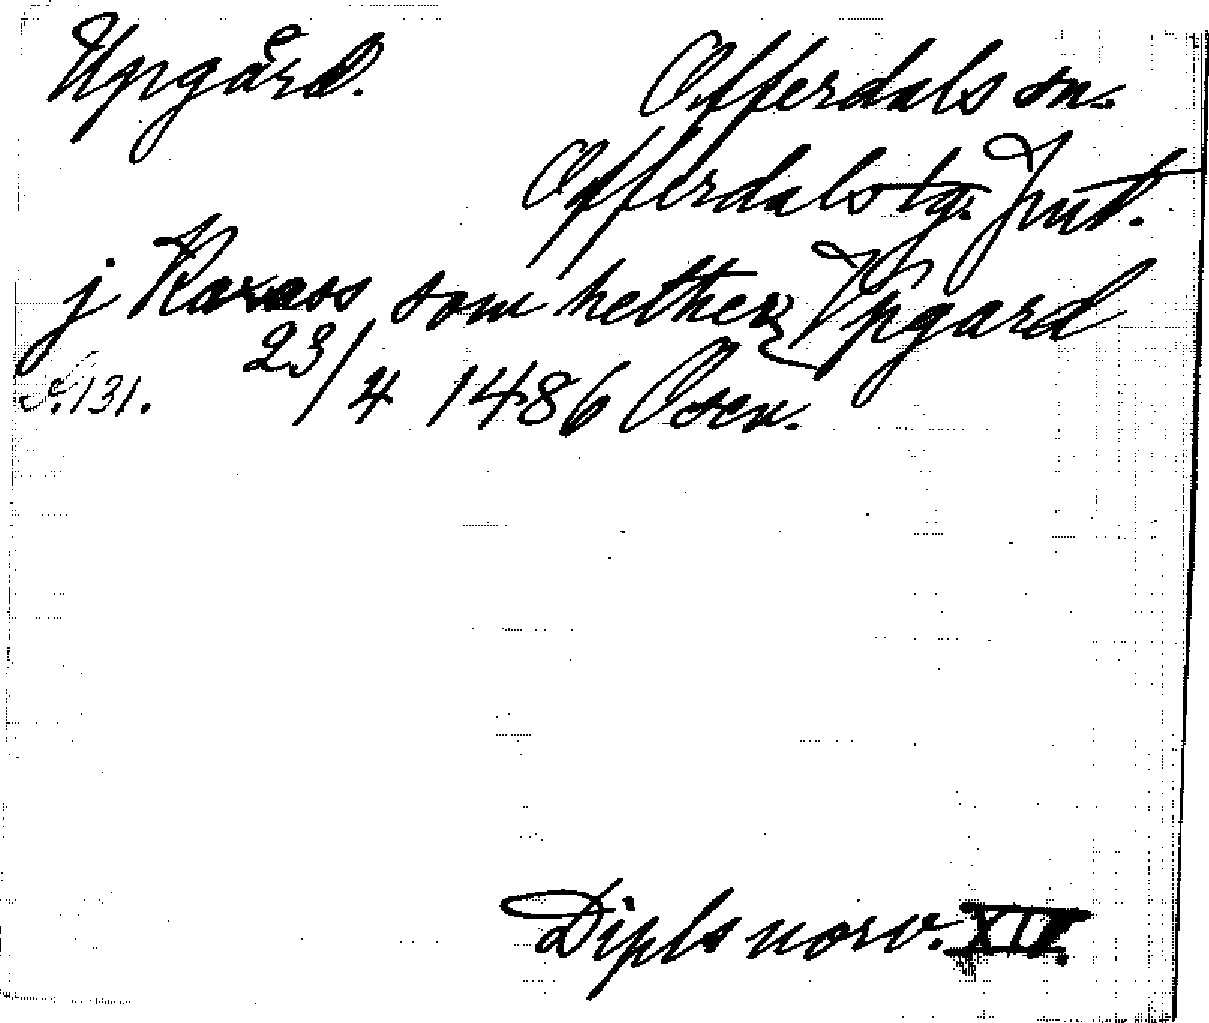 Uppgård. Offerdals sn.
Offerdals tg. Jmt.
j Raxaas som hether Vpgard
S. 131. 23/4 1486 Osen.
Dipl norv. XIV.